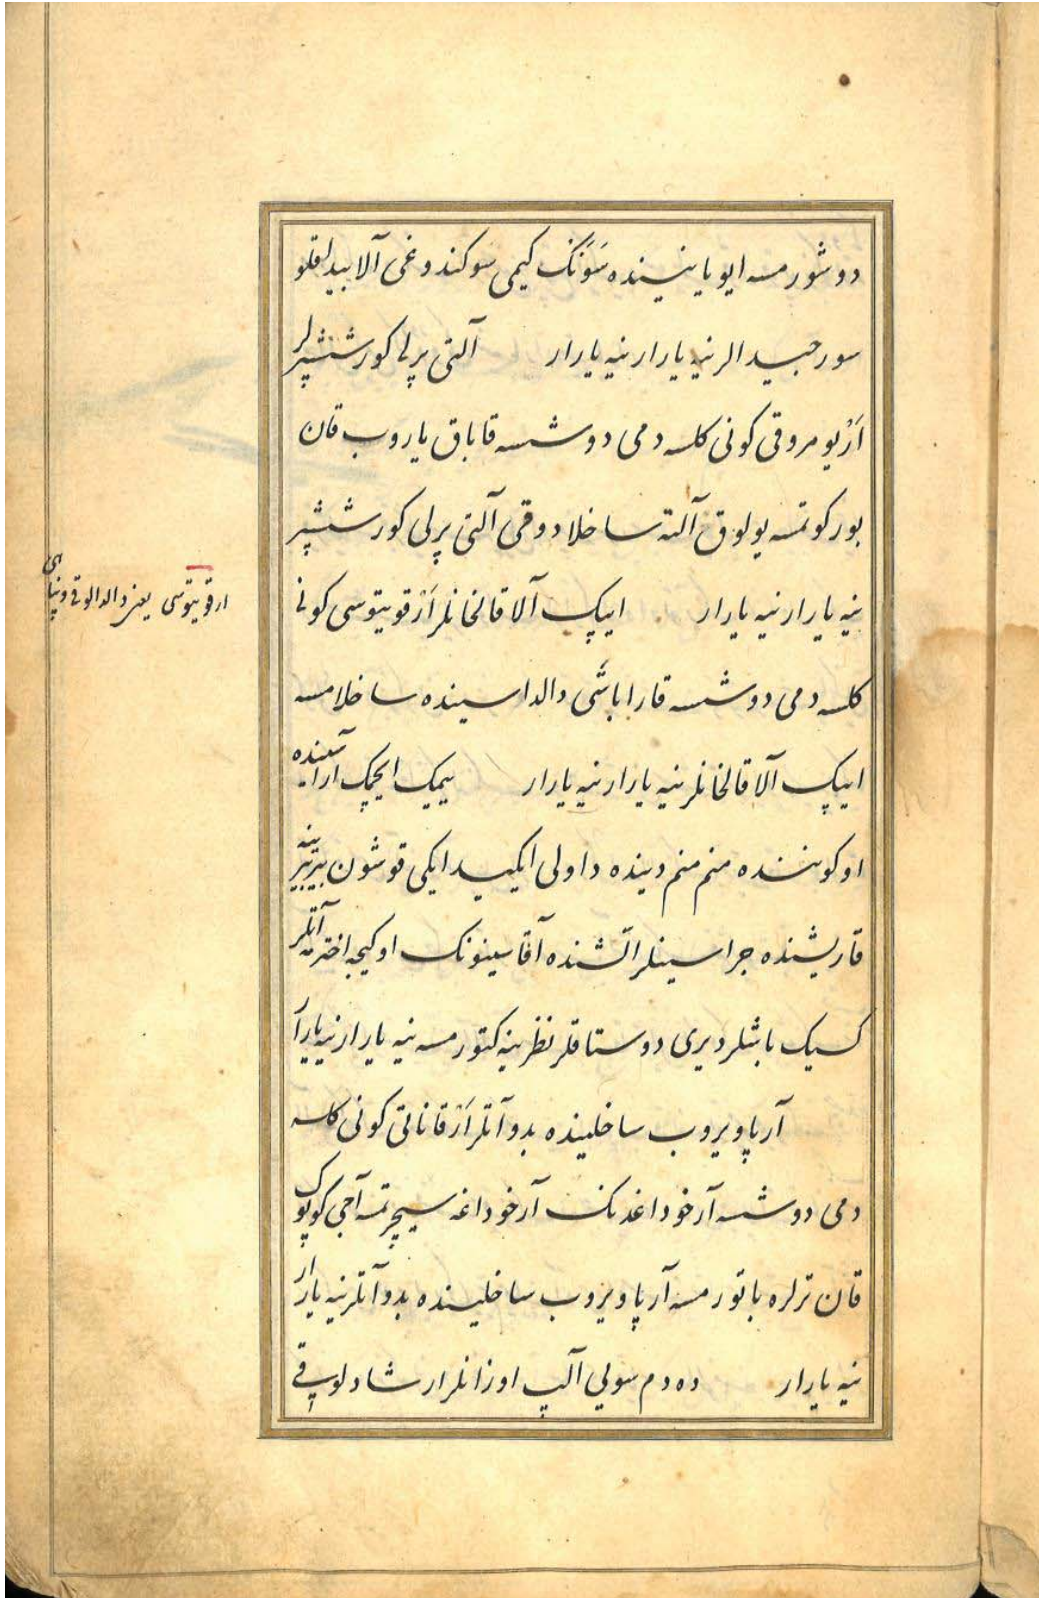 دوشورمسه ایو یانینده سَوَنک کیمی سوکندوغی آلا بیداقلو
سور جیدالر نیه یارار نیه یارار آلتی پرلی کور ششپرلر
اَرْ یومروقی کونی کلسه دمی دوشسه قاباق یاروب قان
بورکوتمسه یولوق آلته ساخلادوقی آلتی پرلی کور ششپر
نیه یارار نیه یارار ایپک آلا قالخانلر اَرْقویتوسی کونی
کلسه دمی دوشسه قارا باشی دالداسینده ساخلامسه
ایپک آلا قالخانلر نیه یارار نیه یارار ییمک ایچمک آراسینده
اوکوننده منم منم دینده داولی ایکید ایکی قوشون بیربیرینه
قاریشنده جراسینلر آتشنده آقاسینونک اوکیجه اخترمه آتلر
کسیک باشلر دیری دوستاقلر نظرینه کتورمسه نیه یارار نیه یارار
آرپا ویروب ساخلینده بدو آتلر اَرْقاناتی کونی کلسه
دمی دوشسه آرخوداغدنک آرخوداغه سیچرتمه آجی کوپوک
قان ترلره باتورمسه آرپا ویروب ساخلینده بدو آتلر نیه یارار
نیه یارار ده دم سولی آلپ اوزانلر ارشاد لوپقی
ارقویتوسی یعنی دالدالوق وپناهی